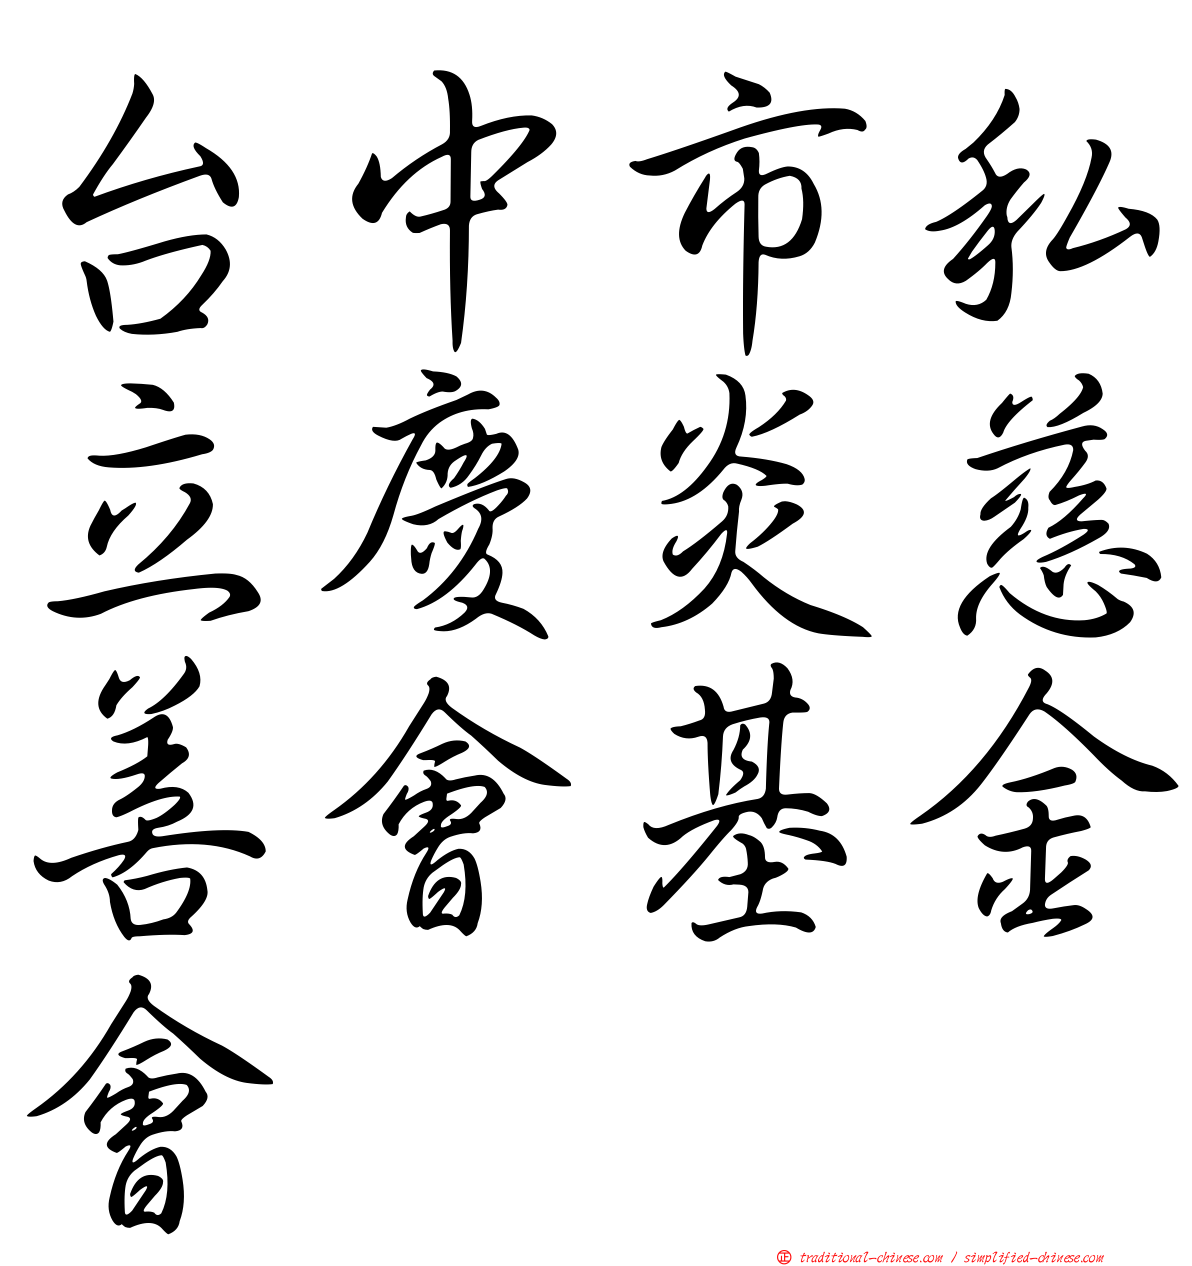 台中市私
立慶炎慈
善會基金
會
正 traditional-chinese.com / simplified-chinese.com